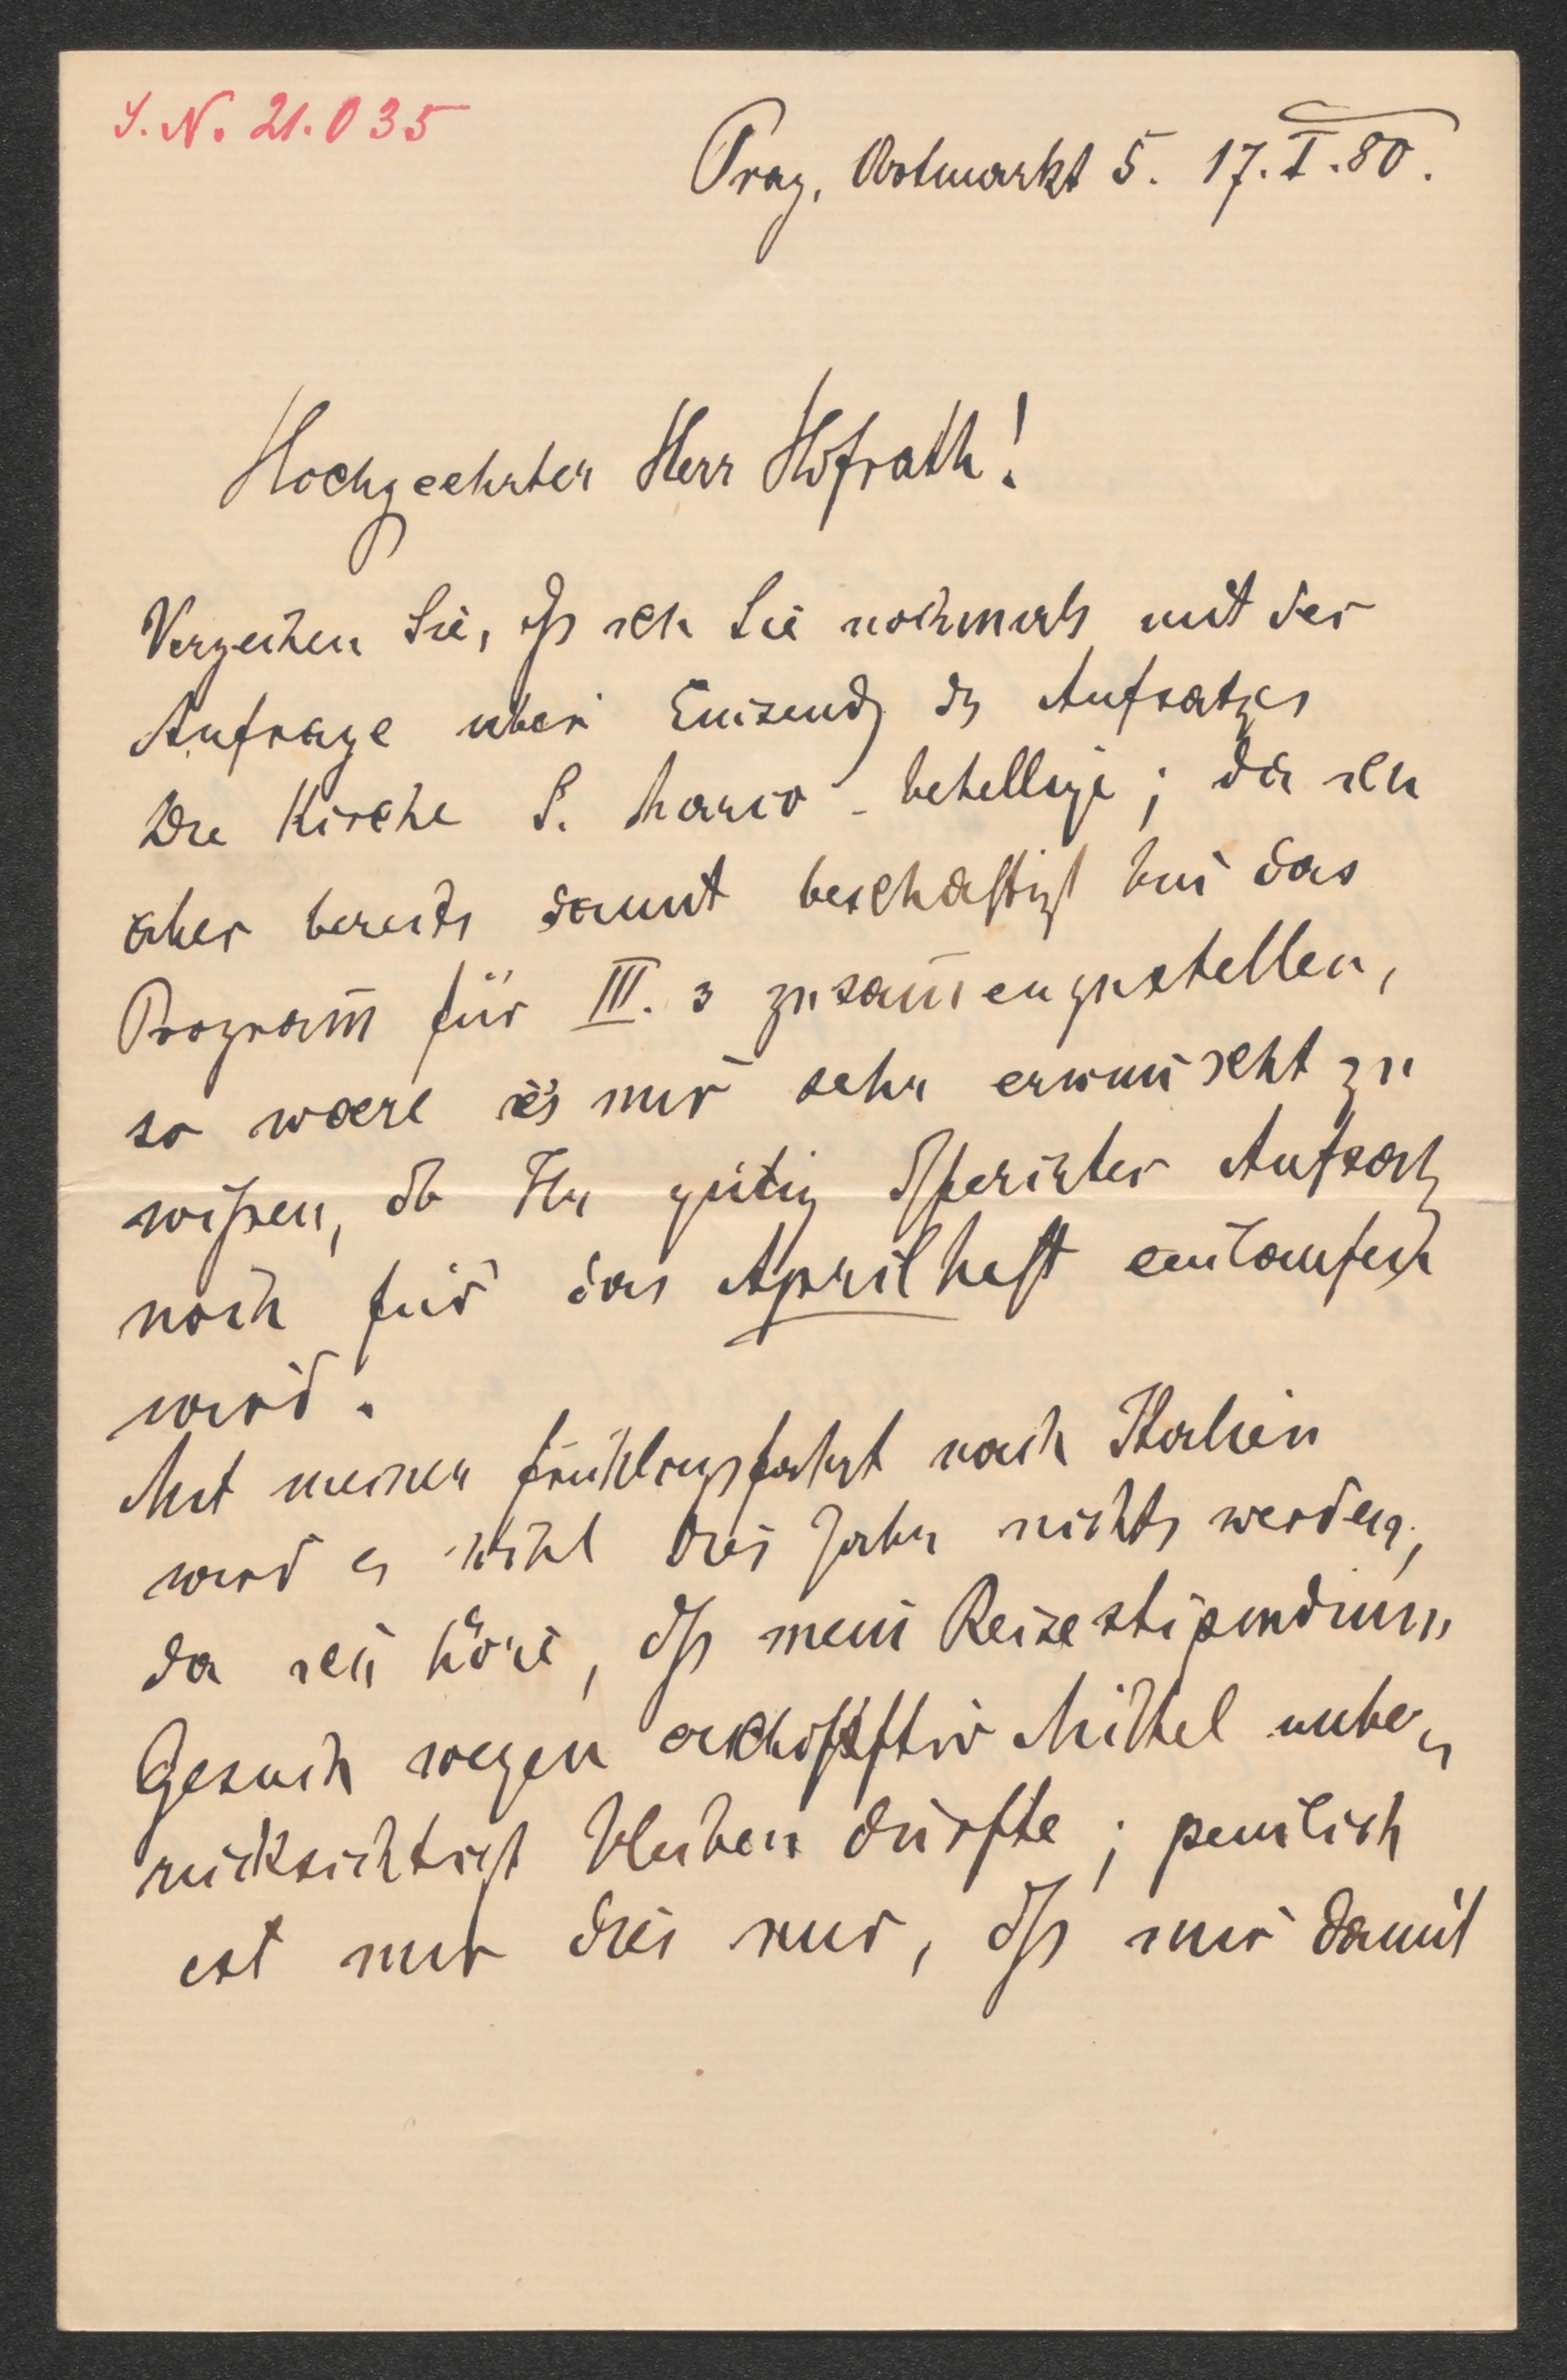 I. N. 21.035
Prag, Obstmarkt 5. 17.I.80.
Hochgeehrter Herr Hofrath!
Verzeihen Sie, dſs ich Sie nochmals mit der
Anfrage über Einsendg ds Aufsatzes
Die Kirche S. Marco - behellige; da ich
aber bereits damit beschäftigt bin das
Program̄ für III. 3 zusam̄enzustellen,
so waere es mir sehr erwünscht zu
wiſsen, ob Ihr gütig offerirter Aufsatz
noch für das Aprilheft einlaufen
wird.
Mit meiner Frühlingsfahrt nach Italien
wird es wohl dies Jahr nichts werden,
da ich höre, dſs mein Reisestipendium
Gesuch wegen erschöpfter Mittel unbe-
rücksichtigt bleiben dürfte; peinlich
ist mir dies nur, dſs mir damit